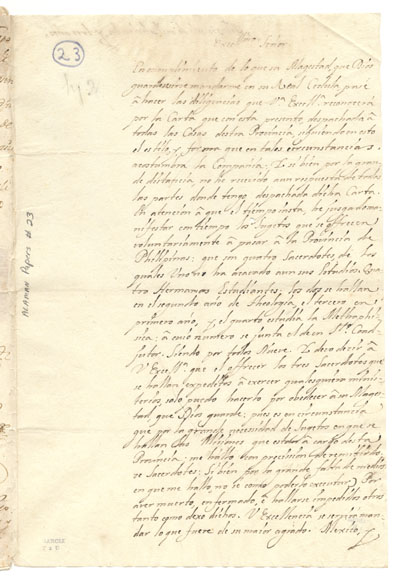 23
Exc.mo Señor
En cumplimiento de lo que su Magestad, que Dios
guarde sirve mandarme en su Real Cedula, pasé
à hacer las diligencias que V.a Excel.a reconocerà
por la Carta que con esta presento, despachada à
todas las Casas desta Provincia, siguiendo en esto
el estilo, y forma que en tales circunstancias
acostumbra la Compañia: Y si bien por la gran
de distancia, no he recivido aun respuesta de todas
las partes donde tengo despachada dicha Carta
En atencion à que el tiempo insta, he juzgado ma
nifestar con tiempo los Sugetos que se ofrecen
voluntariamente à pasar à la Provincia de
Philipinas: que son quatro Sacerdotes de los
quales Uno no ha acavado aun sus Estudios, Qua
tro Hermanos Estudiantes; los dos se hallan
en el segundo año de Theologia, el tercero en
primero año, y, el quarto estudia la Metaphi
sica: à cuio numero se junta el de un H.o Coad
jutor. Siendo por todos Nueve. Y debo decir à
V Exc.a que el offrecer los tres Sacerdotes que
se hallan expeditos à exercer qualesquiera minis
terios, solo puedo hacerlo por obedecer à su Mages
tad, que Dios guarde; pues es en circunstancia
que por la grande necesidad de Sugetos en que se
hallan las Misiones que estan à cargo de esta
Provincia; me hallo con precision de
Sacerdotes; Si bien por la grande falta de medios
en que me hallo no se como poderlo executar. Por
aver muerto, enfermado, è hallarse impedidos otros
tantos como dexo dichos. V Excellencia se servirà man
dar lo que fuere de su maior agrado. Mexico, y
ALAMAN Papers # 23